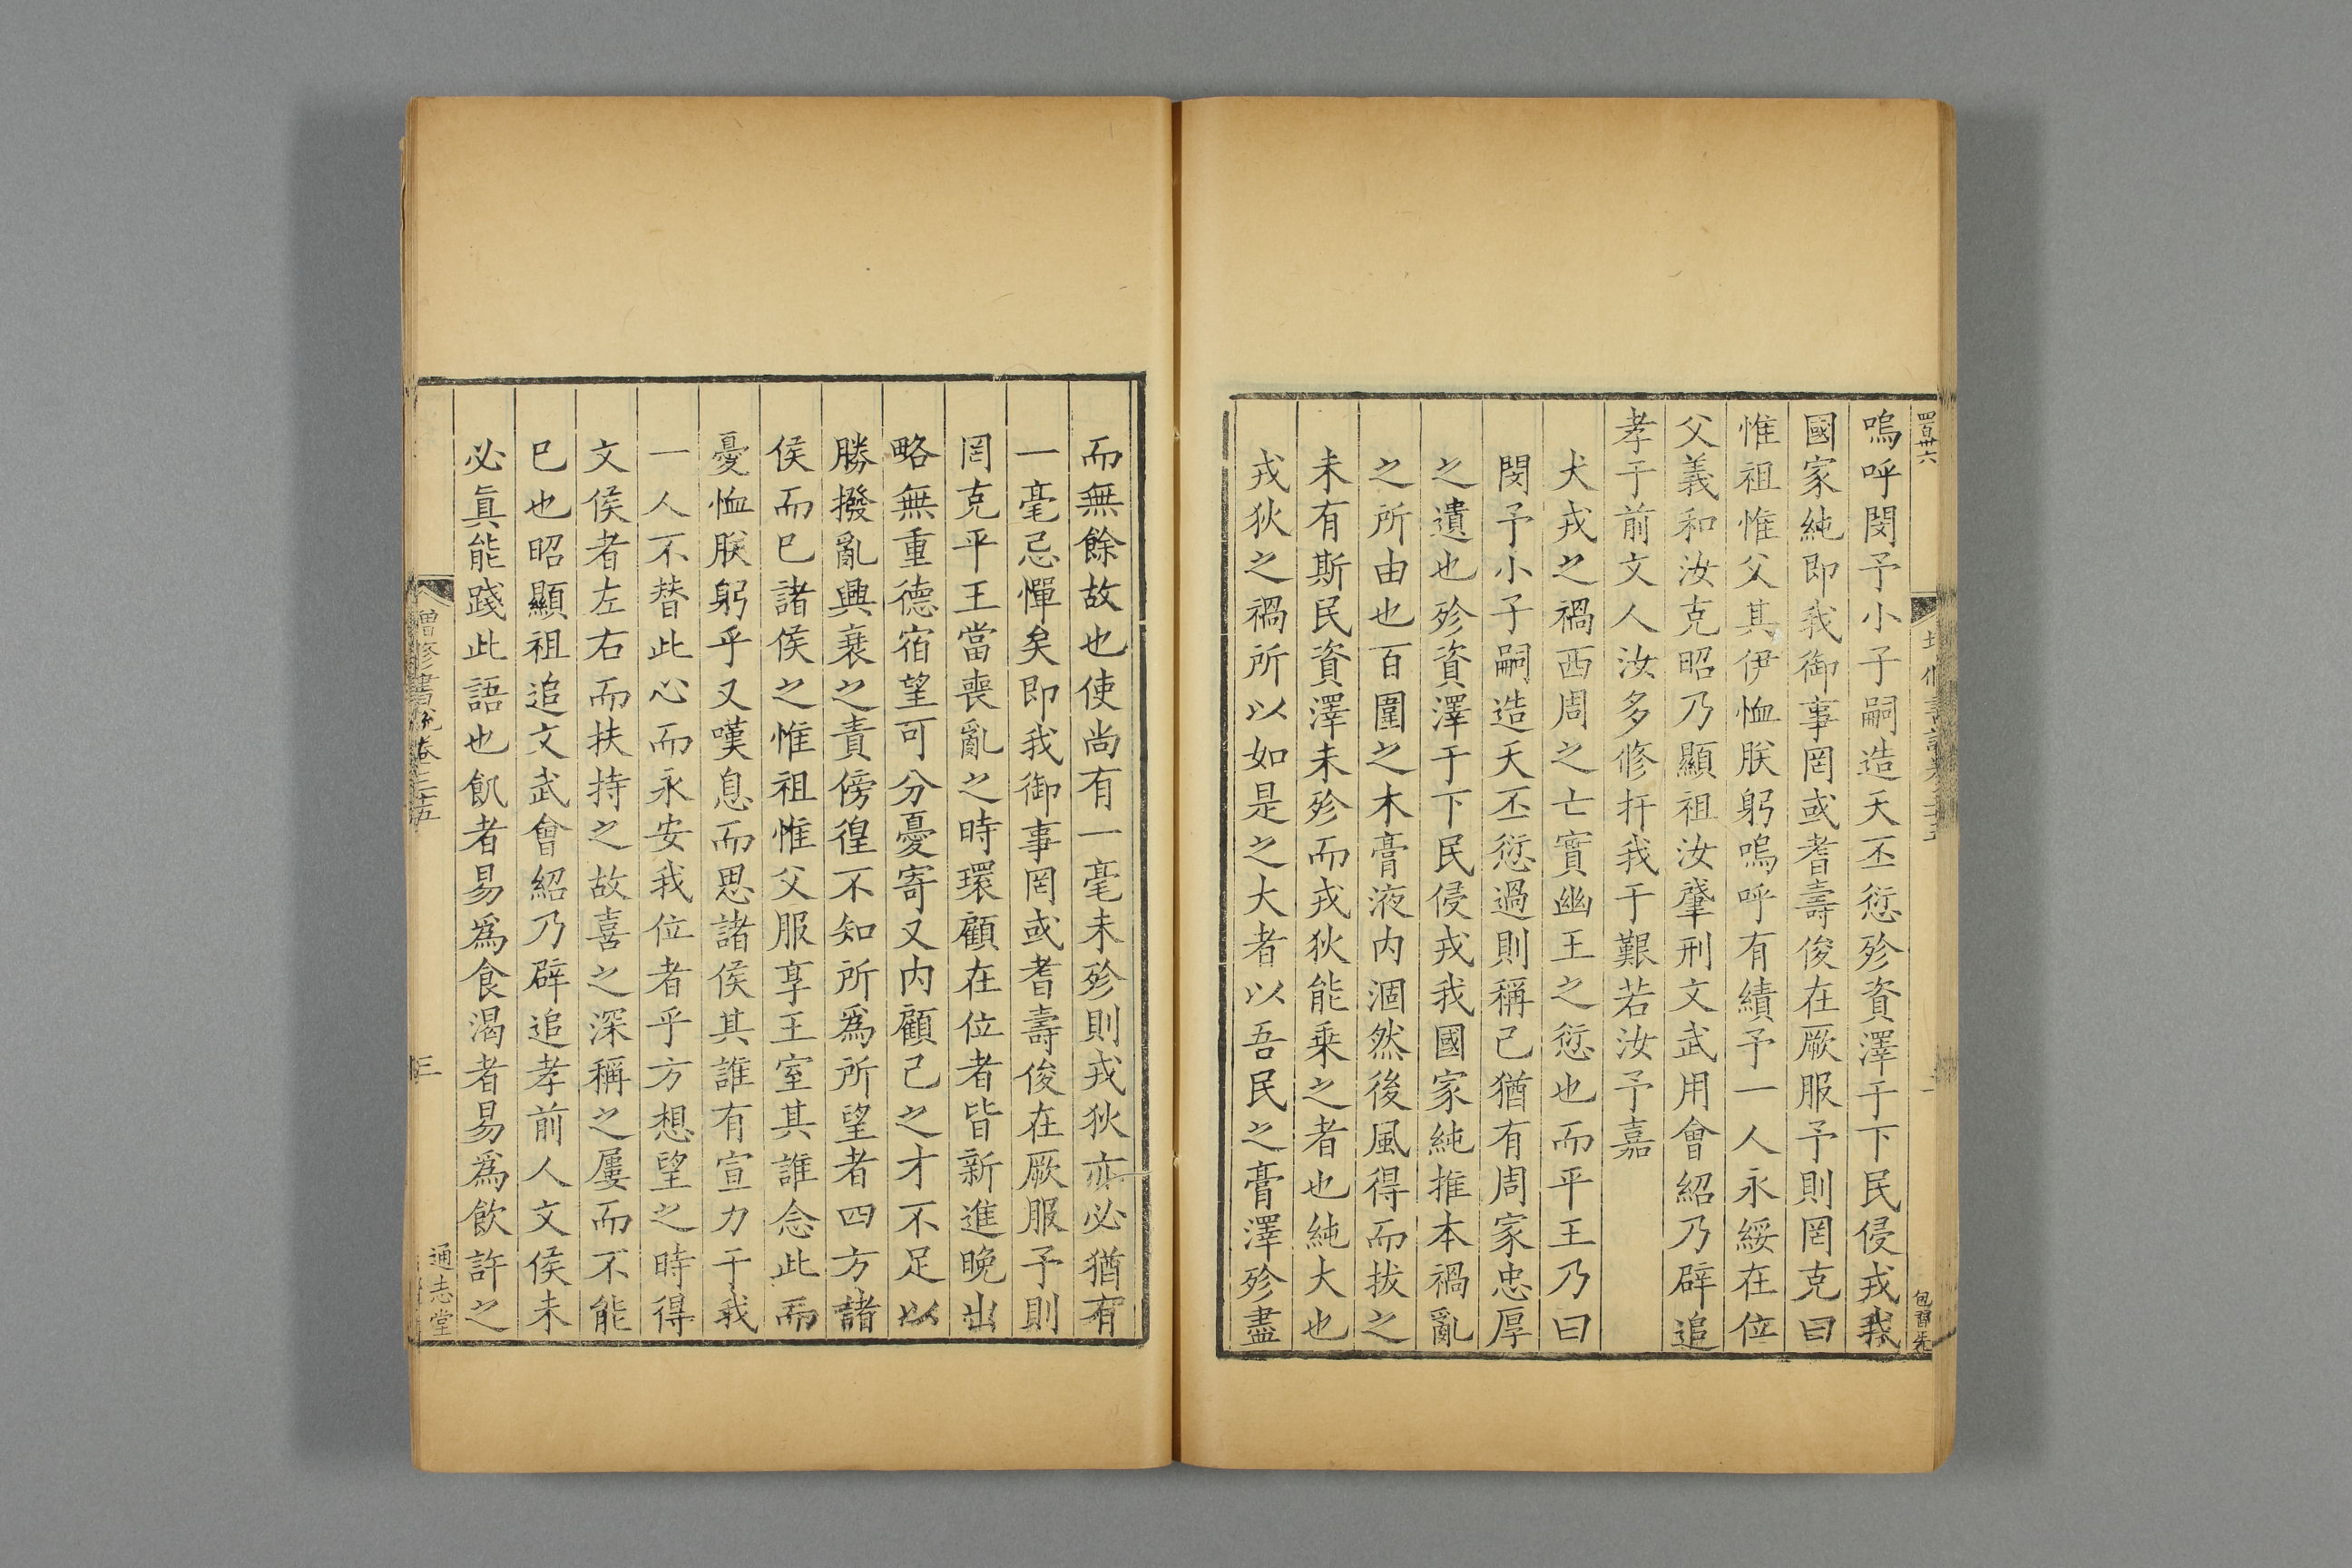 四百卅六
嗚呼閔予小子嗣造天丕愆殄資澤于下民侵戎我
國家純即我御事罔或耆壽俊在厥服予則罔克曰
惟祖惟父其伊恤朕躬嗚呼有績予一人永綏在位
父義和汝克昭乃顯祖汝肇刑文武用會紹乃辟追
孝于前文人汝多修扞我于艱若汝予嘉
犬戎之禍西周之亡實幽王之愆也而平王乃曰
閔予小子嗣造天丕愆過則稱己猶有周家忠厚
之遺也殄資澤于下民侵戎我國家純推本禍亂
之所由也百圍之木膏液内涸然後風得而拔之
未有斯民資澤未殄而戎狄能乗之者也純大也
戎狄之禍所以如是之大者以吾民之膏澤殄盡
而無餘故也使尚有一毫未殄則戎狄亦必猶有
一毫忌憚矣即我御事罔或耆壽俊在厥服予則
罔克平王當喪亂之時環顧在位者皆新進晩出
略無重德宿望可分憂寄又内顧己之才不足以
勝撥亂興衰之責傍徨不知所爲所望者四方諸
侯而巳諸侯之惟祖惟父服享王室其誰念此而
憂恤朕躬乎又嘆息而思諸侯其誰有宣力于我
一人不替此心而永安我位者乎方想望之時得
文侯者左右而扶持之故喜之深稱之屢而不能
巳也昭顯祖追文武會紹乃辟追孝前人文侯未
必眞能踐此語也飢者易爲食渴者易爲飲許之
增修書說卷三五
三
通志堂